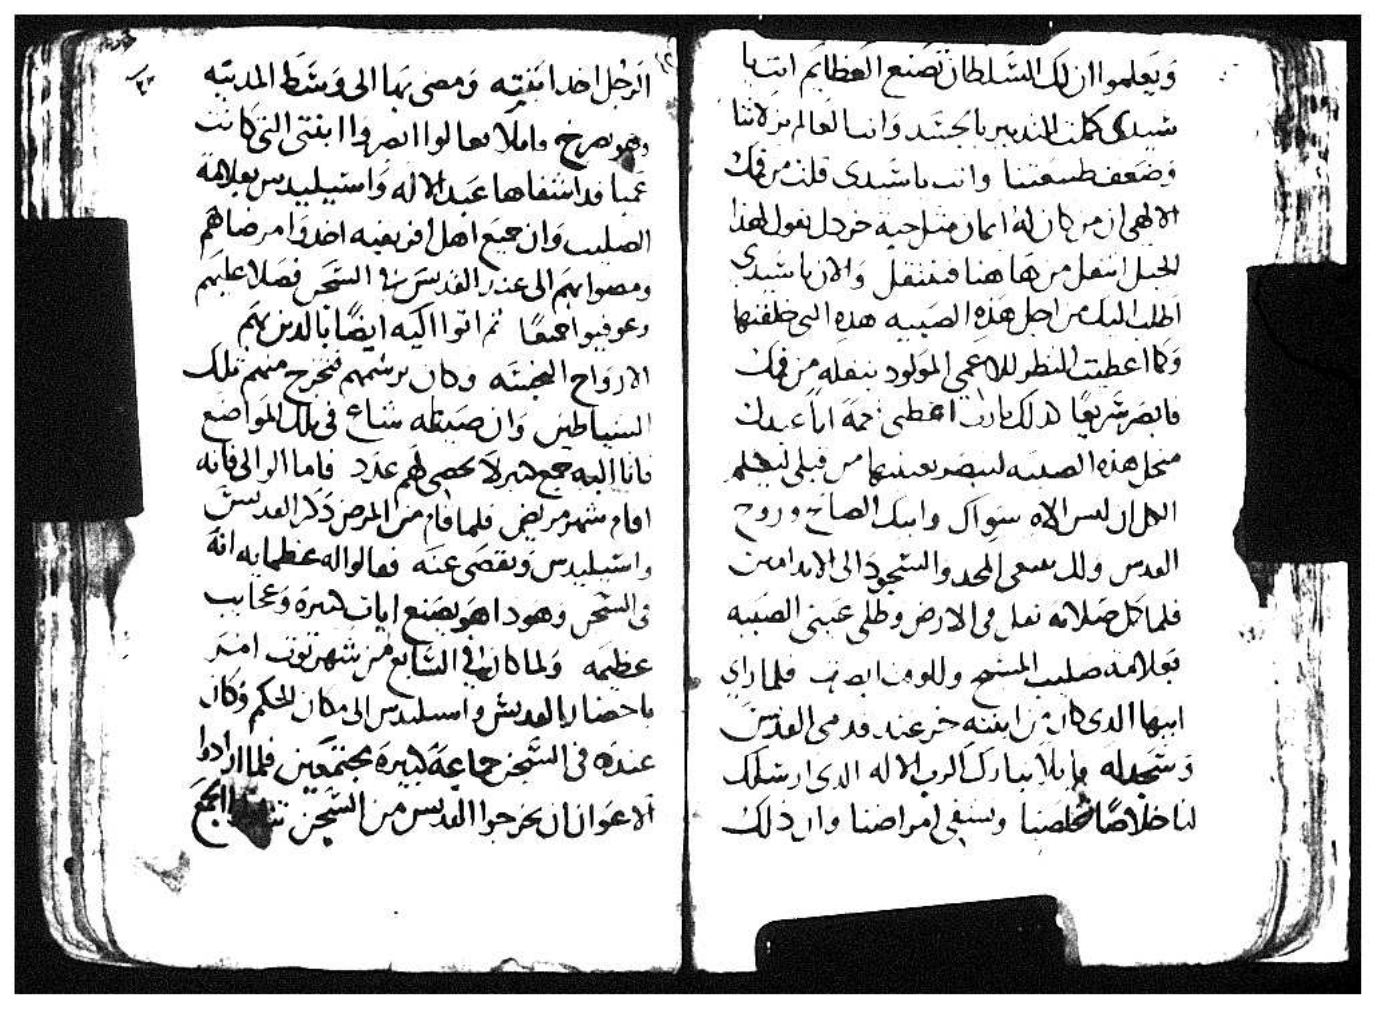 ويعلموا ان لك السلطان تصنع العظايم انت يا
سيدى كملت التدبير بالجسد وانت العالم بزلاتنا
وضعف طبيعتنا وانت يا سيدى قلت من فمك
الالهى ان من كان له ايمان مثل حبه خردل يقول لهذا
الجبل انتقل من هاهنا فينتقل والان يا سيدي
اطلب اليك من اجل هذه الصبيه هذه التى خلقتها
وكما اعطيت النظر للاعمى المولود بتفله من فمك
فابصر سريعا كذلك يارب اعطى نعمة انا عبدك
منحل هذه الصبيه لتبصر بعينيها من قبلى ليعلم
الكل ان ليس الاه سواك وابيك الصالح وروح
القدس ولك ينبغى المجد والسجود الى الابد امين
فلما كمل صلاته تفل فى الارض وطلى عينى الصبيه
بعلامة صليب المسيح وللوقت ابصرت فلما راي
ابيها الذى كان من ابنته خر عند قدمى القديس
وسجد له قايلا تبارك الرب الاله الذى ارسلك
لنا خلاصا لتخلصنا وتشفى امراضنا وان ذلك
الرجل اخد ابنته ومضى بها الى وسط المدينه
وهو يصرخ قايلا تعالوا ابصروا ابنتى التى كانت
عميا قد اشفاها عبد الاله واسيليدس بعلامة
الصليب وان جميع اهل افريقيه اخدوا مرضاهم
ومضوا بهم الى عند القديس فى السجن فصلا عليهم
وعوفيوا جميعا ثم اتوا اليه ايضا بالدين بهم
الارواح النجسه وكان يرشمهم فتخرج منهم تلك
الشياطين وان صيطه شاع فى تلك المواضع
فاتا اليه جمع كبير لا يحصى لهم عدد فاما الوالى فانه
اقام شهر مريض فلما قام من المرض ذكر القديس
واسيليدس وتقصى عنه فقالوا له عظمايه انه
فى السجن وهودا هو يصنع ايات كثيره وعجايب
عظيمه ولما كان فى السابع من شهر توت امر
باحضار القديس واسيليدس الى مكان الحكم وكان
عنده فى السجن جماعة كبيرة مجتمعين فلما ارادوا
الاعوان ان يخرجوا القديس من السجن الجمع